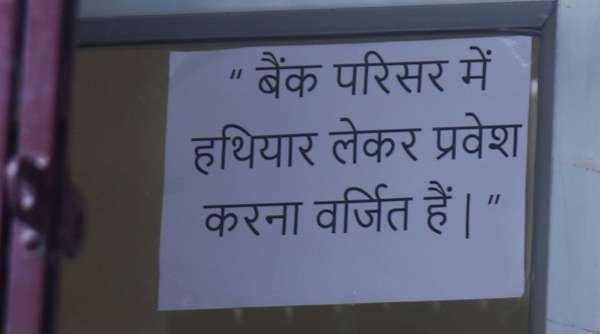 " बैंक परिसर में
हथियार लेकर प्रवेश
करना वर्जित हैं | "